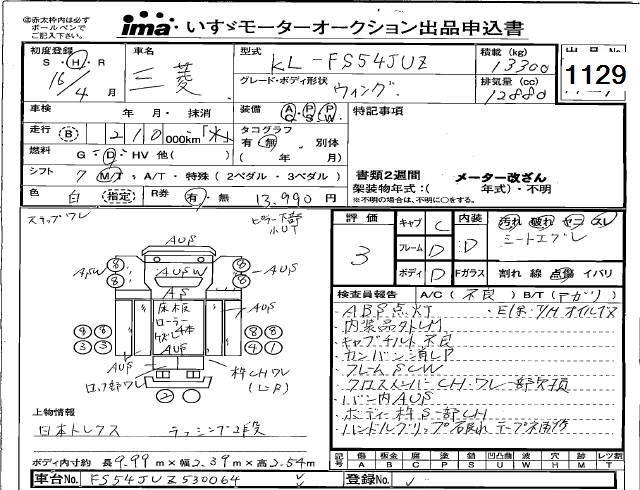 ima いすゞモーターオークション出品申込書
初度登録 S・H・R 16/4月
車名 三菱
型式 KL-FS54JUZ
積載 (kg) 13300
1129
グレード・ボディ形状 ウィング
排気量 (cc) 12880
車検 年 月・ 抹消
装備 AC PS PW
特記事項
走行 B 210 000km
タコグラフ 有 無 別体
燃料 G・D・HV 他( )
( 年 月)
書類2週間 メーター改ざん
シフト 7 MT・A/T・特殊 (2ペダル・3ペダル)
架装物年式:( 年式)・不明
※不明の場合は、不明に○をする。
色 白 指定 R券 有・無 13,990円
ステップワレ
評価 3
キャブ C 内装 D
汚れ 破れ ヤニ スレ
シートエプレ
フレーム D
ボディ D Fガラス 割れ 線 点傷 イバリ
検査員報告 A/C (不良) B/T (アガリ)
・ABS点灯
・内装品外レ付
・キャブチルト不良
・カンバン消しP
・フレームSCW
・クロスメンバーCH・ワレ一部欠損
・バン内AUS
・ボディー枠S一部CH
・ハンドルグリップ破れテープ補修
AUS
AUSW
AS
床木板
ローラー
4本
AUS
枠CHワレ
(LR)
上物情報
日本トレクス ラッシング2段
ボディ内寸約 長9.99m×幅2.39m×高2.54m
記号 傷A 板金B 腐C 塗P 錆S 凹凸曲U 波W 穴H 跡M レツ割T
車台No. FS54JUZ530064
登録No.